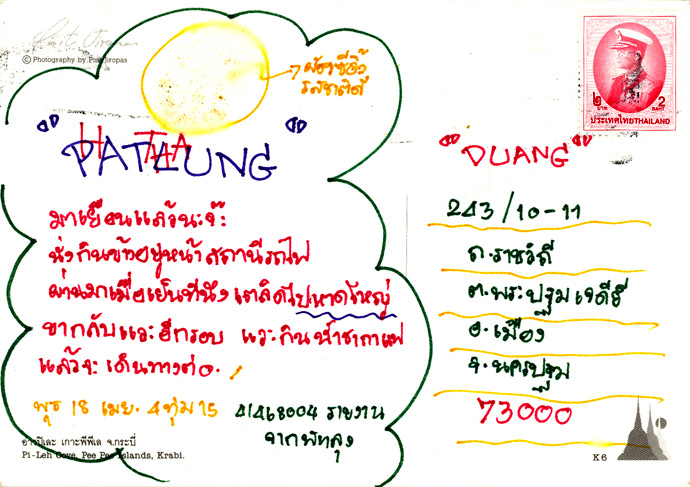 © Photography by Pisit Jiropas
ผงชีอิ้ว
รสชาติดี
๒ 2
บาท BAHT
ประเทศไทย THAILAND
"PATLUNG"
H THA
"DUANG"
มาเยือนแล้วนะจ๊ะ
นั่งกินข้าวอยู่หน้าสถานีรถไฟ
ผ่านมาเมื่อเย็นทีนึง เตลิดไปหาดใหญ่
ขากลับแวะอีกรอบ แวะกินน้ำชากาแฟ
แล้วจะเดินทางต่อ.
พุธ 18 เมย. 4 ทุ่ม 15
41468004 รายงาน
จากพัทลุง
243/10-11
ถ.ราชวิถี
ต.พระปฐมเจดีย์
อ.เมือง
จ.นครปฐม
73000
อ่าวปิเละ เกาะพีพีเล จ.กระบี่
Pi-Leh Cove, Pee Pee Islands, Krabi.
K 6